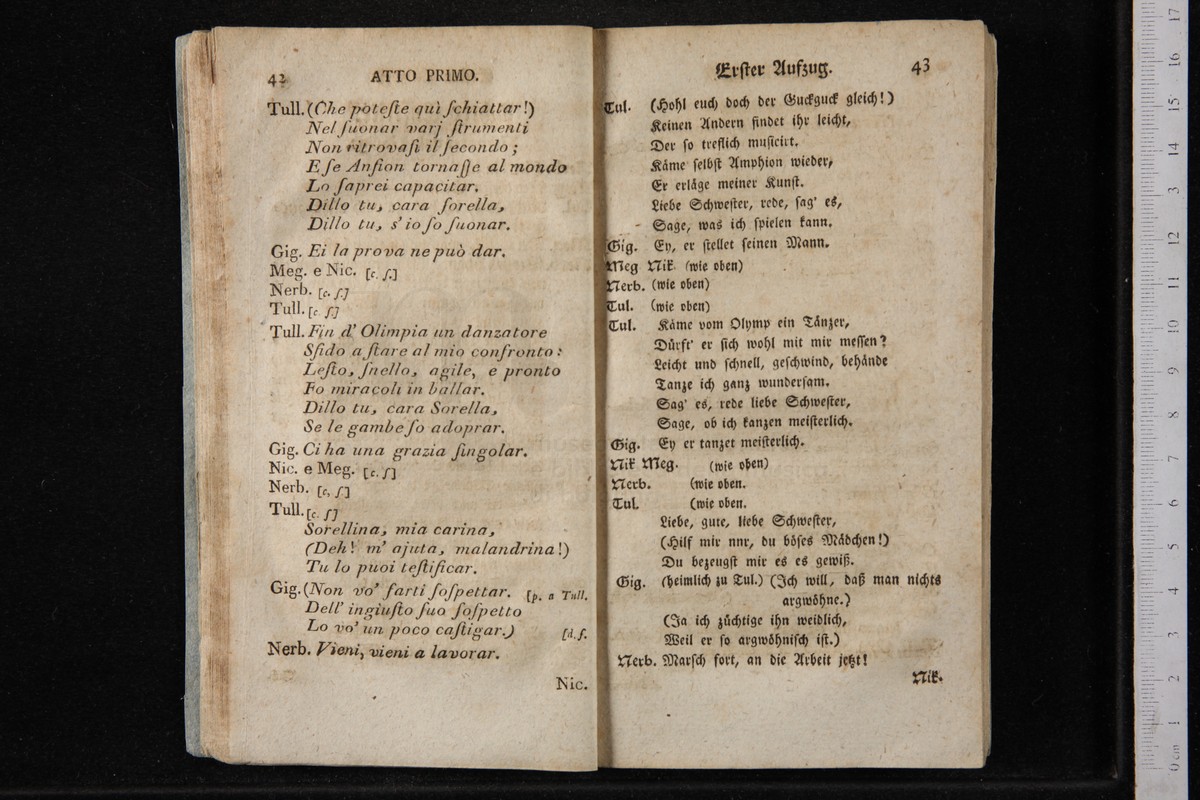 42 ATTO PRIMO.
Tull. (Che poteſte quì ſchiattar!)
Nel ſuonar varj ſtrumenti
Non ritrovaſi il ſecondo;
E ſe Anfion tornaſſe al mondo
Lo ſaprei capacitar.
Dillo tu, cara ſorella,
Dillo tu, s' io ſo ſuonar.
Gig. Ei la prova ne può dar.
Meg. e Nic. [c. ſ.]
Nerb. [c. ſ.]
Tull. [c. ſ.]
Tull. Fin d' Olimpia un danzatore
Sfido a ſtare al mio confronto:
Leſto, ſnello, agile, e pronto
Fo miracoli in ballar.
Dillo tu, cara Sorella,
Se le gambe ſo adoprar.
Gig. Ci ha una grazia ſingolar.
Nic. e Meg. [c. ſ]
Nerb. [c, ſ]
Tull. [c. ſ]
Sorellina, mia carina,
(Deh! m' ajuta, malandrina!)
Tu lo puoi teſtificar.
Gig. (Non vo' farti ſoſpettar. [p. a Tull.
Dell' ingiuſto ſuo ſoſpetto
Lo vo' un poco caſtigar.) [d. ſ.
Nerb. Vieni, vieni a lavorar.
Nic.
Erſter Aufzug. 43
Tul. (Hohl euch doch der Guckguck gleich!)
Keinen Andern findet ihr leicht,
Der ſo treflich muſicirt.
Käme ſelbſt Amphion wieder,
Er erläge meiner Kunſt.
Liebe Schweſter, rede, ſag' es,
Sage, was ich ſpielen kann.
Gig. Ey, er ſtellet ſeinen Mann.
Meg Nik. (wie oben)
Nerb. (wie oben)
Tul. (wie oben)
Tul. Käme vom Olymp ein Tänzer,
Dürft' er ſich wohl mit mir meſſen?
Leicht und ſchnell, geſchwind, behände
Tanze ich ganz wunderſam.
Sag' es, rede liebe Schweſter,
Sage, ob ich kanzen meiſterlich.
Gig. Ey er tanzet meiſterlich.
Nik Meg. (wie oben)
Nerb. (wie oben.
Tul. (wie oben.
Liebe, gute, liebe Schweſter,
(Hilf mir nnr, du böſes Mädchen!)
Du bezeugſt mir es es gewiß.
Gig. (heimlich zu Tul.) (Ich will, daß man nichts
argwöhne.)
(Ja ich züchtige ihn weidlich,
Weil er ſo argwöhniſch iſt.)
Nerb. Marſch fort, an die Arbeit jetzt!
Nik.
0 cm 1 2 3 4 5 6 7 8 9 10 11 12 13 14 15 16 17